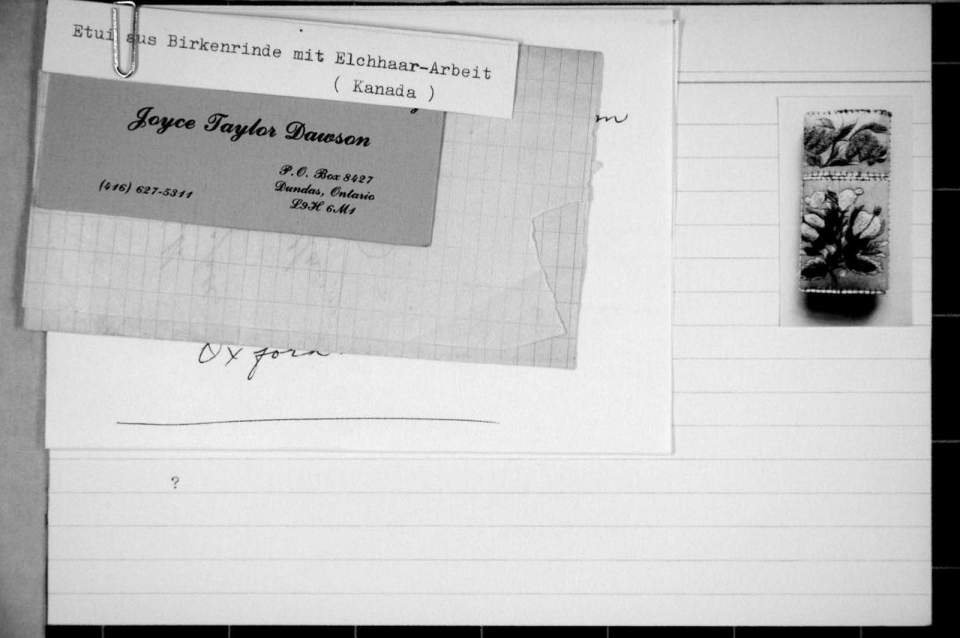 Etui aus Birkenrinde mit Elchhaar-Arbeit
( Kanada )
Joyce Taylor Dawson
P.O. Box 8427
(416) 627-5311
Dundas, Ontario
L9H 6M1
Oxford
?